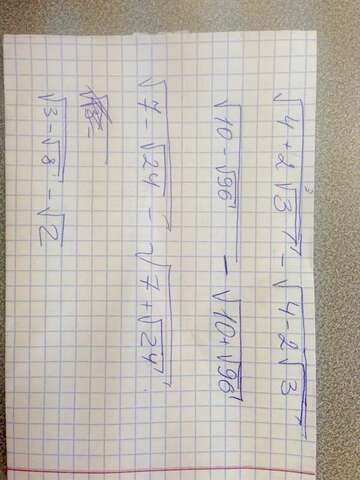 √(4+2√3) - √(4-2√3)
√(10-√96) - √(10+√96)
√(7-√24) - √(7+√24)
√(3-√8) - √2